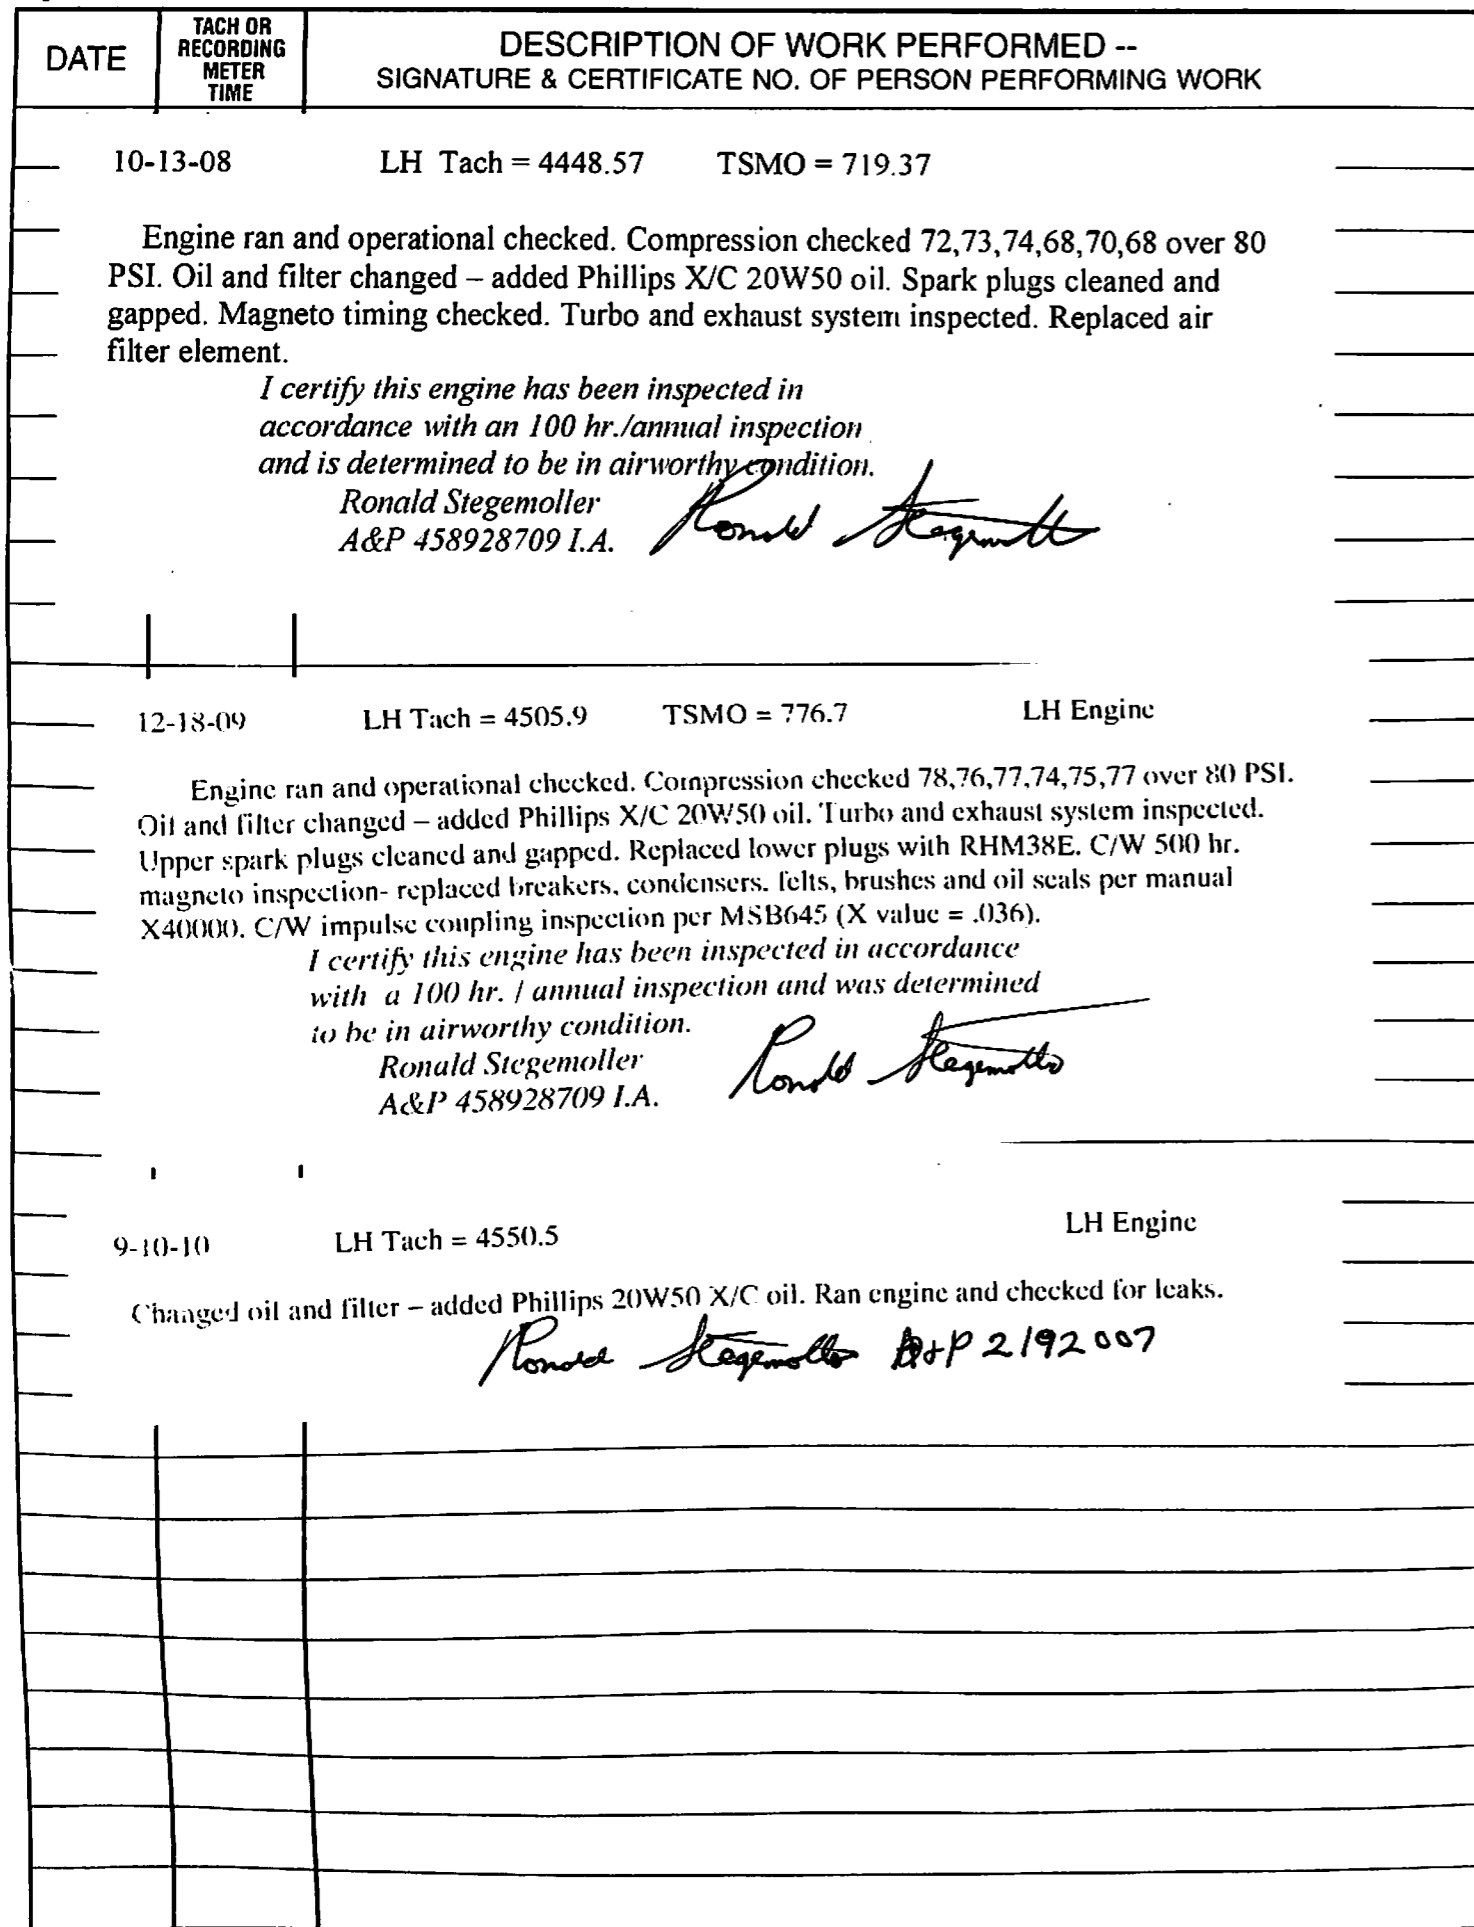 DATE
TACH OR
RECORDING
METER
TIME
DESCRIPTION OF WORK PERFORMED --
SIGNATURE & CERTIFICATE NO. OF PERSON PERFORMING WORK
10-13-08 LH Tach = 4448.57 TSMO = 719.37
Engine ran and operational checked. Compression checked 72,73,74,68,70,68 over 80
PSI. Oil and filter changed – added Phillips X/C 20W50 oil. Spark plugs cleaned and
gapped. Magneto timing checked. Turbo and exhaust system inspected. Replaced air
filter element.
I certify this engine has been inspected in
accordance with an 100 hr./annual inspection
and is determined to be in airworthy condition.
Ronald Stegemoller
A&P 458928709 I.A. Ronald Stegemoller
12-18-09 LH Tach = 4505.9 TSMO = 776.7 LH Engine
Engine ran and operational checked. Compression checked 78,76,77,74,75,77 over 80 PSI.
Oil and filter changed – added Phillips X/C 20W50 oil. Turbo and exhaust system inspected.
Upper spark plugs cleaned and gapped. Replaced lower plugs with RHM38E. C/W 500 hr.
magneto inspection- replaced breakers, condensers, felts, brushes and oil seals per manual
X40000. C/W impulse coupling inspection per MSB645 (X value = .036).
I certify this engine has been inspected in accordance
with a 100 hr. / annual inspection and was determined
to be in airworthy condition.
Ronald Stegemoller
A&P 458928709 I.A. Ronald Stegemoller
9-10-10 LH Tach = 4550.5 LH Engine
Changed oil and filter – added Phillips 20W50 X/C oil. Ran engine and checked for leaks.
Ronald Stegemoller A&P 2192007